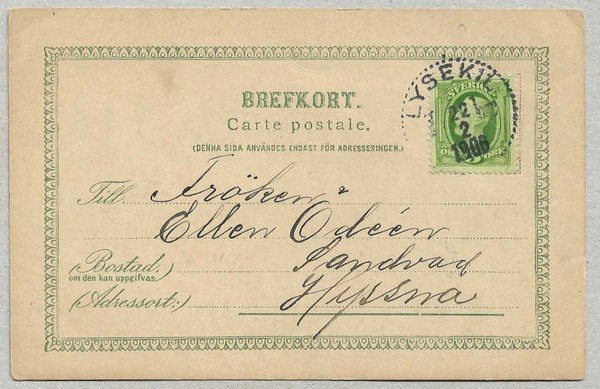 BREFKORT.
Carte postale.
(DENNA SIDA ANVÄNDES ENDAST FÖR ADRESSERINGEN.)
LYSEKIL
SVERIGE
22 1
2
1906
Till Fröken
Ellen Odéen
(Bostad, Sandvad
om den kan uppgifvas:
(Adressort:) Hyssna